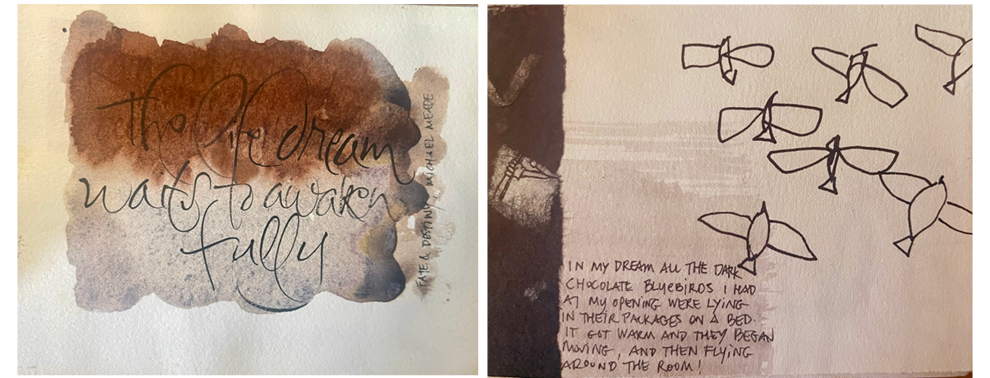 the life dream
waits to awaken
fully
FATE & DESTINY, MICHAEL MEADE
IN MY DREAM ALL THE DARK
CHOCOLATE BLUEBIRDS I HAD
AT MY OPENING WERE LYING
IN THEIR PACKAGES ON A BED.
IT GOT WARM AND THEY BEGAN
MOVING, AND THEN FLYING
AROUND THE ROOM!